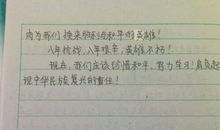 为我们换来的和平的英雄!
八年抗战,八年艰辛,英雄不朽!
现在,我们应该珍惜和平,努力学习!肩负起
现中华民族复兴的责任!